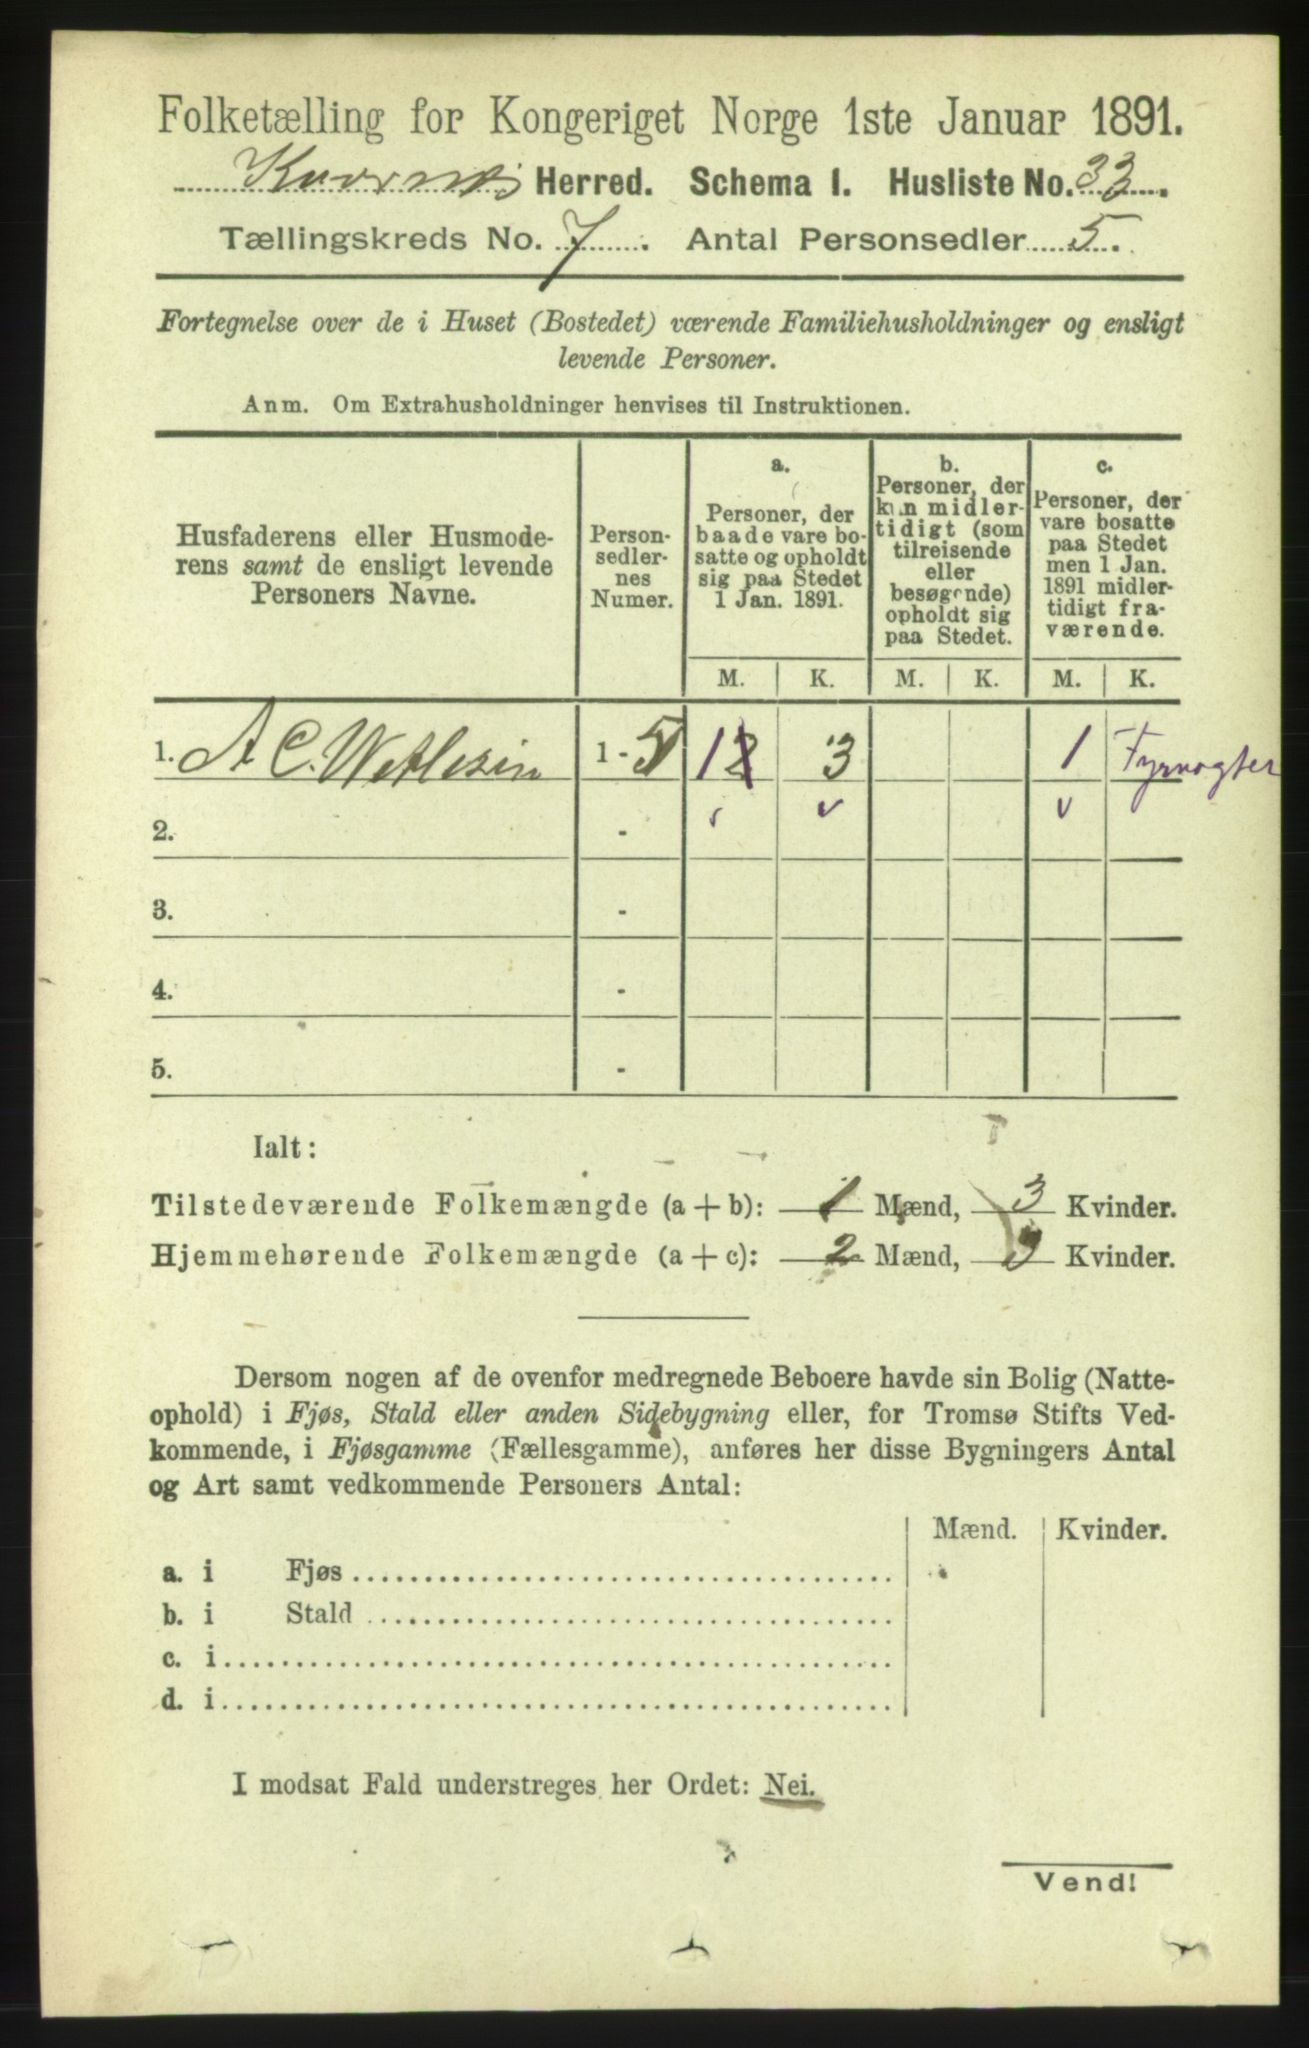 Folketælling for Kongeriget Norge 1ste Januar 1891.
Kvernes Herred. Schema 1. Husliste No. 33.
Tællingskreds No. 7. Antal Personsedler 5.
Fortegnelse over de i Huset (Bostedet) værende Familiehusholdninger og ensligt
levende Personer.
Anm. Om Extrahusholdninger henvises til Instruktionen.
Husfaderens eller Husmode-
rens samt de ensligt levende
Personers Navne.
Person-
sedler-
nes
Numer.
a.
Personer, der
baade vare bo-
satte og opholdt
sig paa Stedet
1 Jan. 1891.
b.
Personer, der
kun midler-
tidigt (som
tilreisende
eller
besøgende)
opholdt sig
paa Stedet.
c.
Personer, der
vare bosatte
paa Stedet
men 1 Jan.
1891 midler-
tidigt fra-
værende.
M. K. M. K. M. K.
1. A C. Wetlesen 1 - 5 1 2 3 1 Fyrvogter
2. -
3. -
4. -
5. -
Ialt:
Tilstedeværende Folkemængde (a + b): 1 Mænd, 3 Kvinder.
Hjemmehørende Folkemængde (a + c): 2 Mænd, 3 Kvinder.
Dersom nogen af de ovenfor medregnede Beboere havde sin Bolig (Natte-
ophold) i Fjøs, Stald eller anden Sidebygning eller, for Tromsø Stifts Ved-
kommende, i Fjøsgamme (Fællesgamme), anføres her disse Bygningers Antal
og Art samt vedkommende Personers Antal:
Mænd. Kvinder.
a. i Fjøs
b. i Stald
c. i
d. i
I modsat Fald understreges her Ordet: Nei.
Vend!